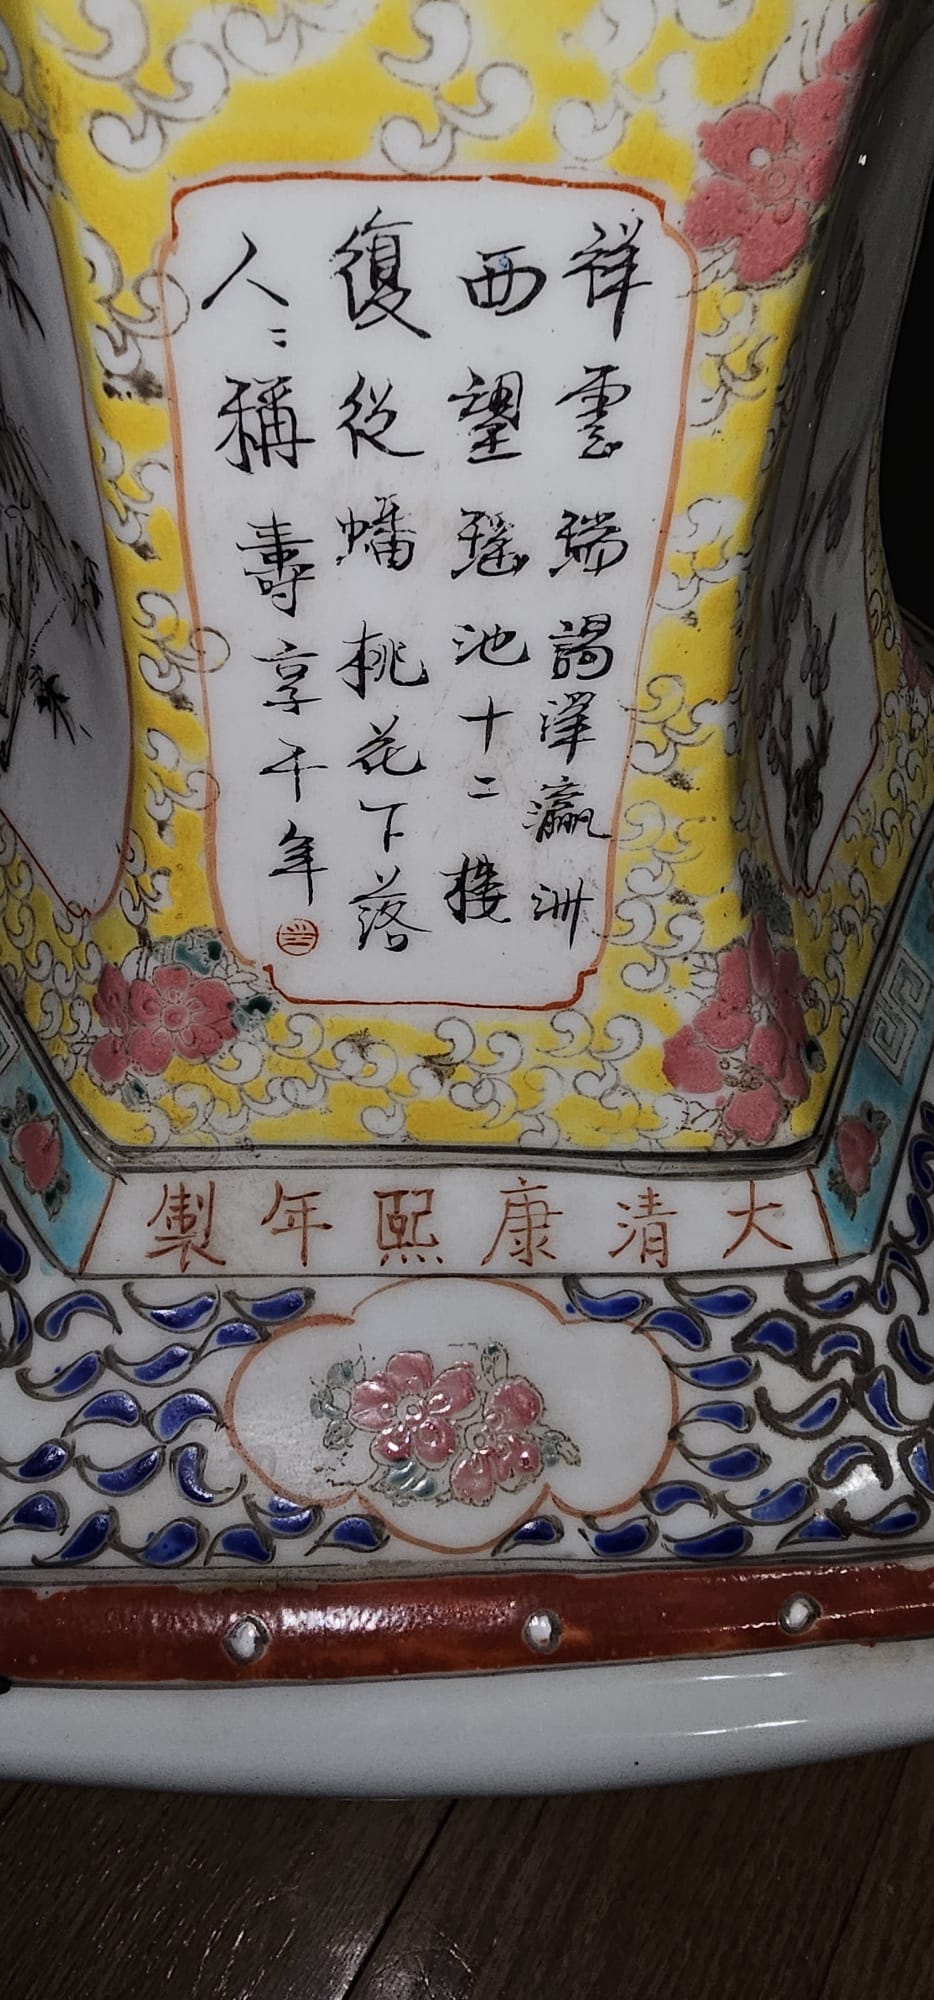 祥雲瑞謁澤瀛洲
西望瑤池十二樓
復從蟠桃花下落
人〻稱壽享千年
大清康熙年製